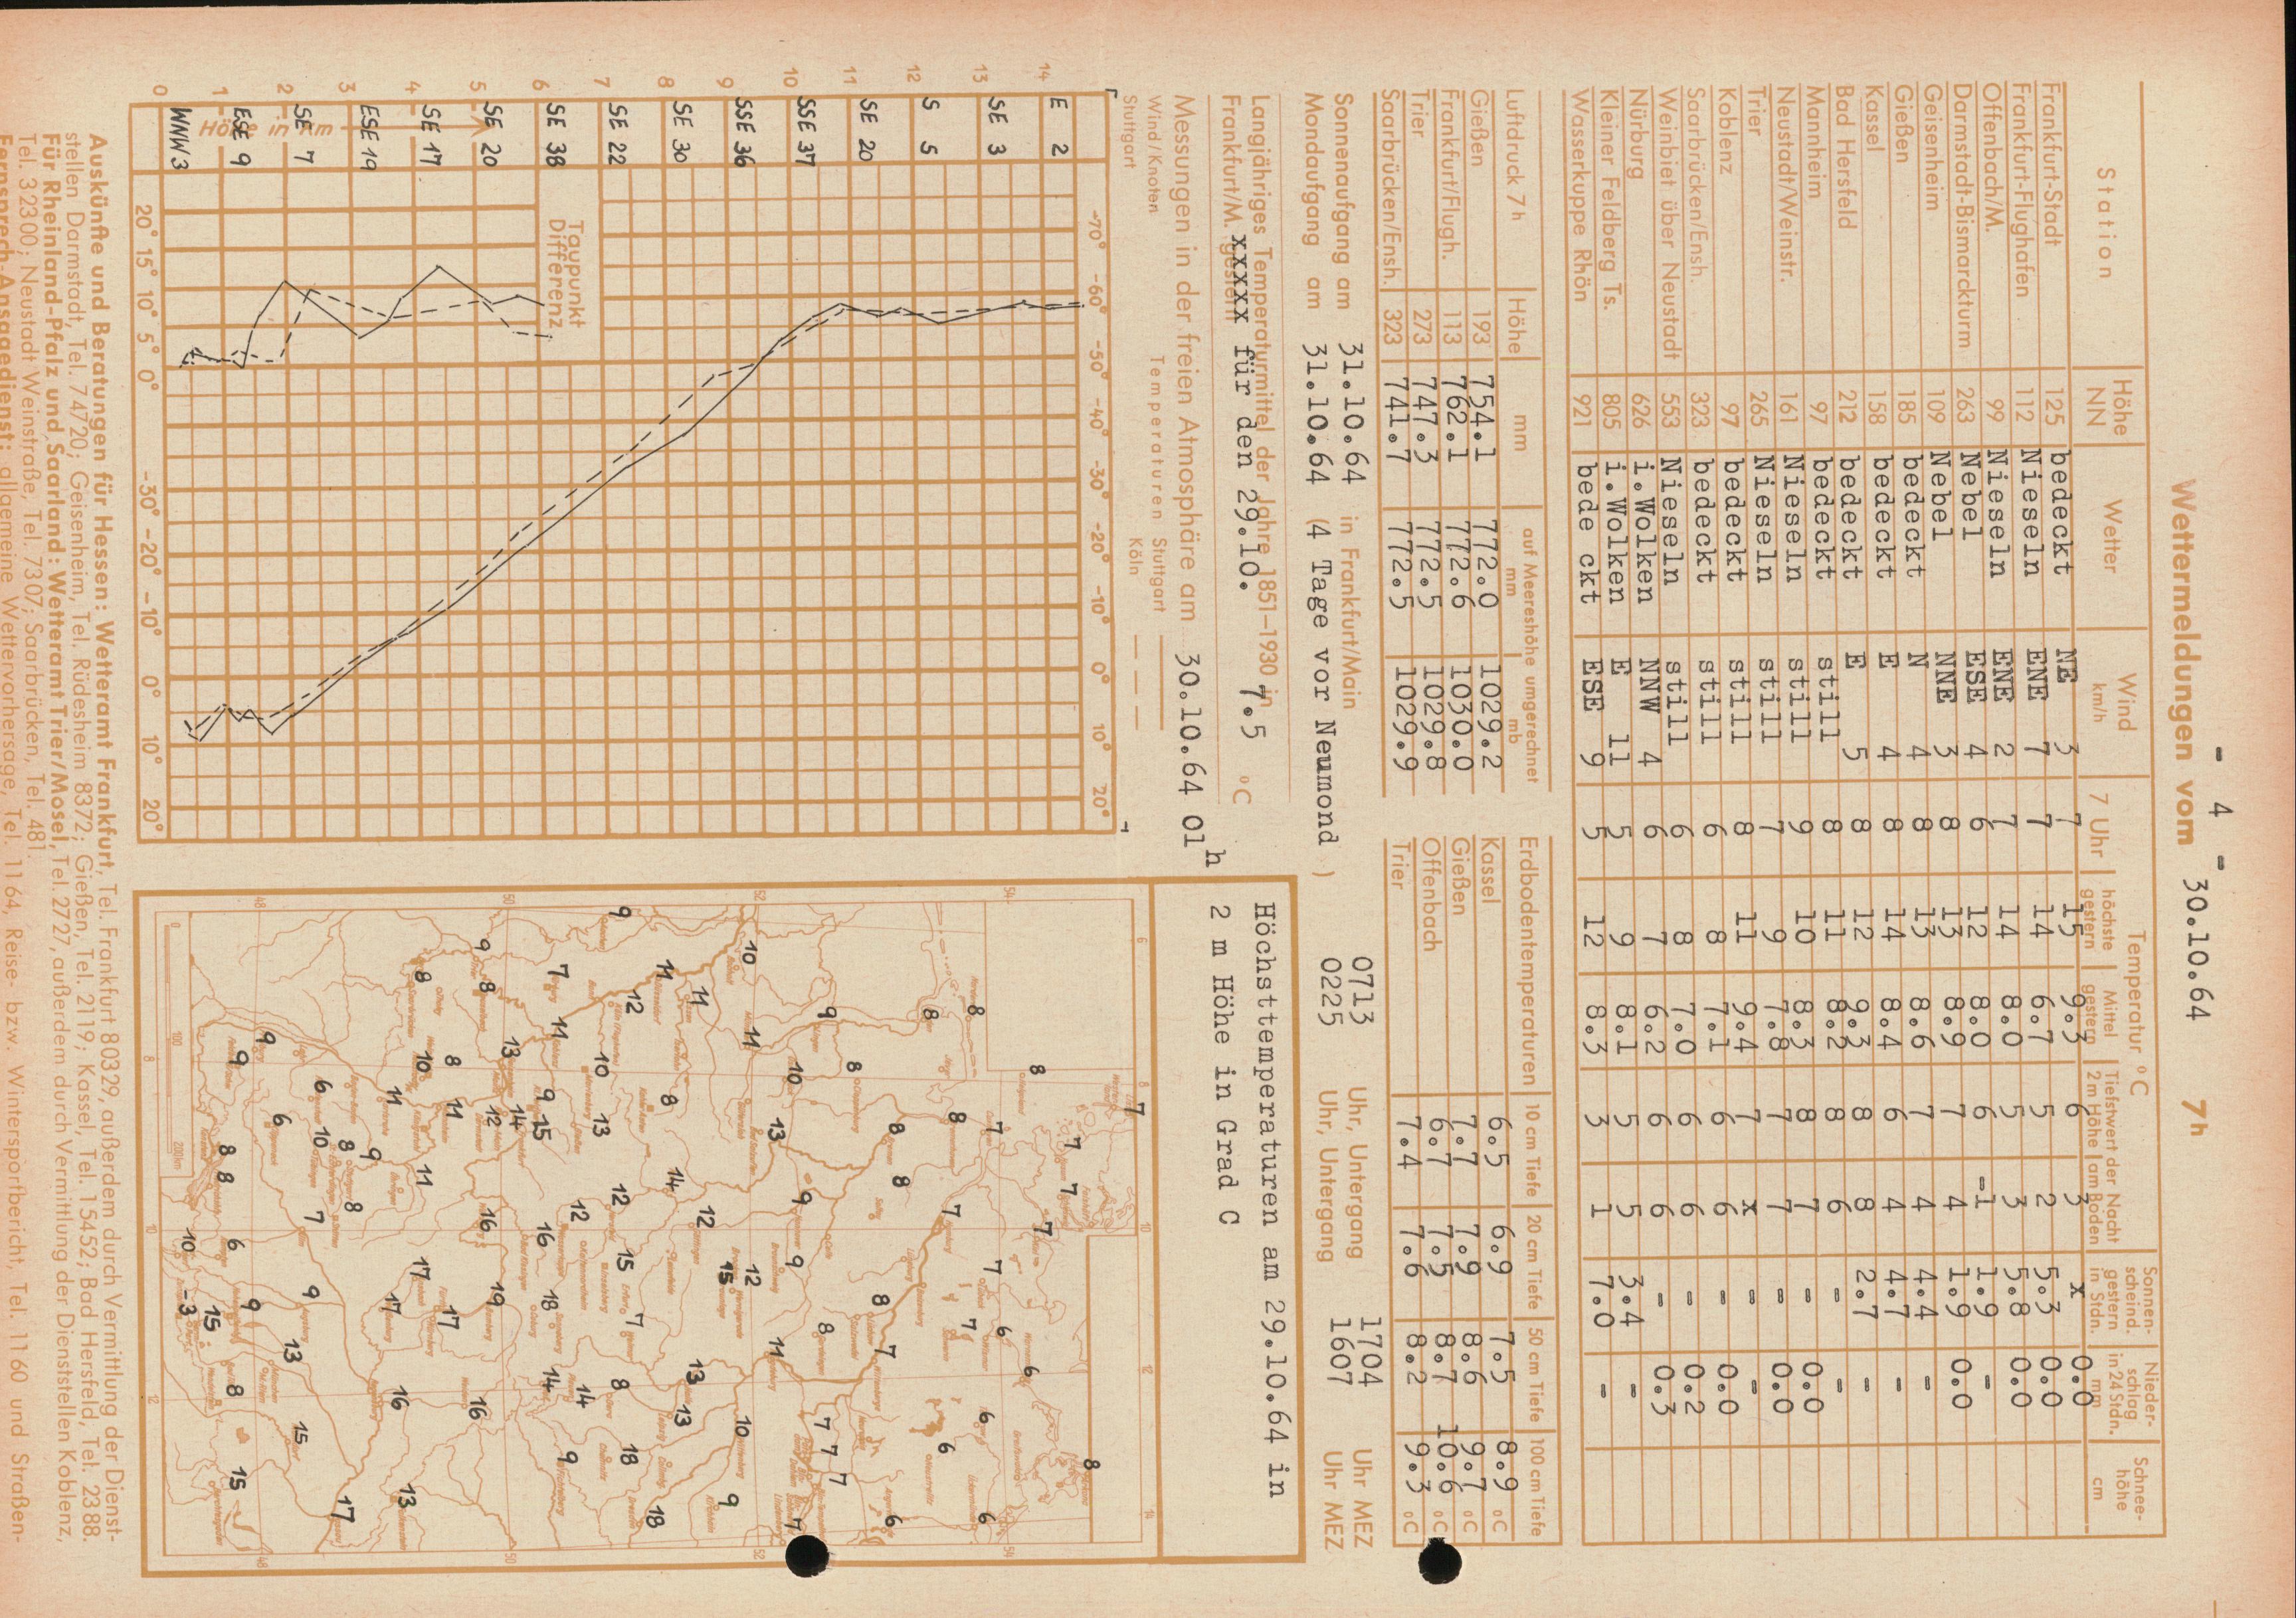 - 4 -
Wettermeldungen vom 30.10.64 7h
Station Höhe NN Wetter Wind km/h Temperatur °C Sonnenscheind. gestern in Stdn. Niederschlag mm in 24 Stdn. Schneehöhe cm
7 Uhr höchste gestern Mittel gestern Tiefstwert der Nacht 2 m Höhe am Boden
Frankfurt-Stadt 125 bedeckt NE 3 7 15 9.3 6 3 x 0.0
Frankfurt-Flughafen 112 Nieseln ENE 7 7 14 6.7 5 2 5.3 0.0
Offenbach/M. 99 Nieseln ENE 2 7 14 8.0 5 3 5.8 0.0
Darmstadt-Bismarckturm 263 Nebel ESE 4 6 12 8.0 6 -1 1.9 -
Geisenheim 109 Nebel NNE 3 8 13 8.9 7 4 1.9 0.0
Gießen 185 bedeckt N 4 8 13 8.6 7 4 4.4 -
Kassel 158 bedeckt E 4 8 14 8.4 6 4 4.7 -
Bad Hersfeld 212 bedeckt E 5 8 12 9.3 8 8 2.7 -
Mannheim 97 bedeckt still 8 11 8.2 8 6 - -
Neustadt/Weinstr. 161 Nieseln still 9 10 8.3 8 7 - 0.0
Trier 265 Nieseln still 7 9 7.8 7 7 - 0.0
Koblenz 97 bedeckt still 8 11 9.4 7 x - -
Saarbrücken/Ensh. 323 bedeckt still 6 8 7.1 6 6 - 0.0
Weinbiet über Neustadt 553 Nieseln still 6 8 7.0 6 6 - 0.2
Nürburg 626 i.Wolken NNW 4 6 7 6.2 6 6 - 0.3
Kleiner Feldberg Ts. 805 i.Wolken E 11 5 9 8.1 5 5 3.4 -
Wasserkuppe Rhön 921 bede ckt ESE 9 5 12 8.3 3 1 7.0 -
Luftdruck 7h Höhe mm auf Meereshöhe umgerechnet mm mb
Gießen 193 754.1 772.0 1029.2
Frankfurt/Flugh. 113 762.1 772.6 1030.0
Trier 273 747.3 772.5 1029.8
Saarbrücken/Ensh. 323 741.7 772.5 1029.9
Erdbodentemperaturen 10 cm Tiefe 20 cm Tiefe 50 cm Tiefe 100 cm Tiefe
Kassel 6.5 6.9 7.5 8.9 °C
Gießen 7.7 7.9 8.6 9.7 °C
Offenbach 6.7 7.5 8.7 10.6 °C
Trier 7.4 7.6 8.2 9.3 °C
Sonnenaufgang am 31.10.64 in Frankfurt/Main 0713 Uhr, Untergang 1704 Uhr MEZ
Mondaufgang am 31.10.64 (4 Tage vor Neumond ) 0225 Uhr, Untergang 1607 Uhr MEZ
Langjähriges Temperaturmittel der Jahre 1851-1930 in
Frankfurt/M. gestern xxxxx für den 29.10. 7.5 °C
Messungen in der freien Atmosphäre am 30.10.64 01h
Wind/Knoten Temperaturen Stuttgart ———
Stuttgart Köln — — —
-70° -60° -50° -40° -30° -20° -10° 0° 10° 20°
14 E 2
13 SE 3
12 S 5
11 SE 20
10 SSE 37
9 SSE 36
8 SE 30
7 SE 22
6 SE 38
5 SE 20
4 SE 17
3 ESE 19
2 SE 7
1 ESE 9
0 WNW 3
Höhe in km
Taupunkt
Differenz
20° 15° 10° 5° 0° -30° -20° -10° 0° 10° 20°
Höchsttemperaturen am 29.10.64 in
2 m Höhe in Grad C
6 8 10 12 14
54 54
52 52
50 50
48 48
0 100 200 km
7 8 7 7 7 8 7 6 6
8 8 8 7 7 6 6 6
9 8 8 8 7 8 7 6
10 11 10 13 9 9 8 11 7 7 7 7
11 11 8 14 12 12 15 13 13 10 9
9 12 10 13 12 15 7 8 18 18
7 11 9 15 12 16 18 14 14 9
9 8 13 14 12 16 19 16
8 8 10 11 11 11 17 17 17 16 13
6 10 8 9 8 7 9 13 15 17
9 9 6 8 8 6 9 8 15
10 -3 15
Auskünfte und Beratungen für Hessen: Wetteramt Frankfurt, Tel. Frankfurt 80329, außerdem durch Vermittlung der Dienst-
stellen Darmstadt, Tel. 74720; Geisenheim, Tel. Rüdesheim 8372; Gießen, Tel. 2119; Kassel, Tel. 15452; Bad Hersfeld, Tel. 2388.
Für Rheinland-Pfalz und Saarland: Wetteramt Trier/Mosel, Tel. 2727, außerdem durch Vermittlung der Dienststellen Koblenz,
Tel. 32300; Neustadt Weinstraße, Tel. 7307; Saarbrücken, Tel. 481.
Fernsprech-Ansagedienst: allgemeine Wettervorhersage, Tel. 1164, Reise- bzw. Wintersportbericht, Tel. 1160 und Straßen-